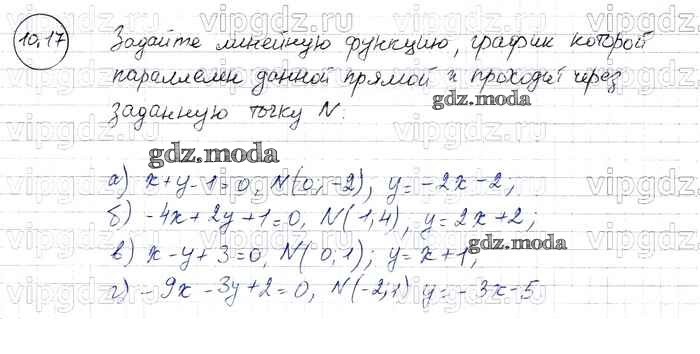 10.17
Задайте линейную функцию, график которой
параллелен данной прямой и проходит через
gdz.moda
заданную точку N.
gdz.moda
а) x+y-1=0, N(0; -2), y=-2x-2;
б) -4x+2y+1=0, N(1,4); y=2x+2;
в) x-y+3=0, N(0,1); y=x+1;
gdz.moda
г) -9x-3y+2=0, N(-2;1) y=-3x-5
vipgdz